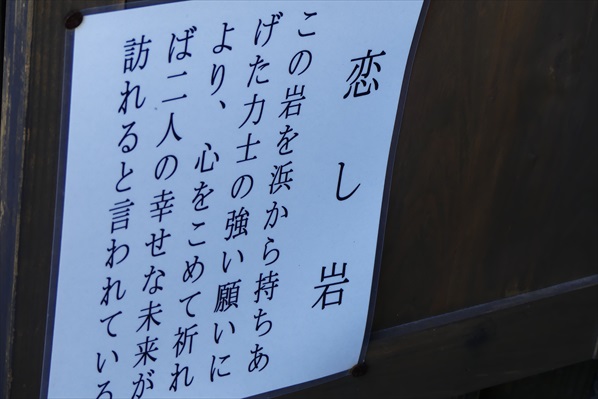 恋し岩
この岩を浜から持ちあ
げた力士の強い願いに
より、心をこめて祈れ
ば二人の幸せな未来が
訪れると言われている